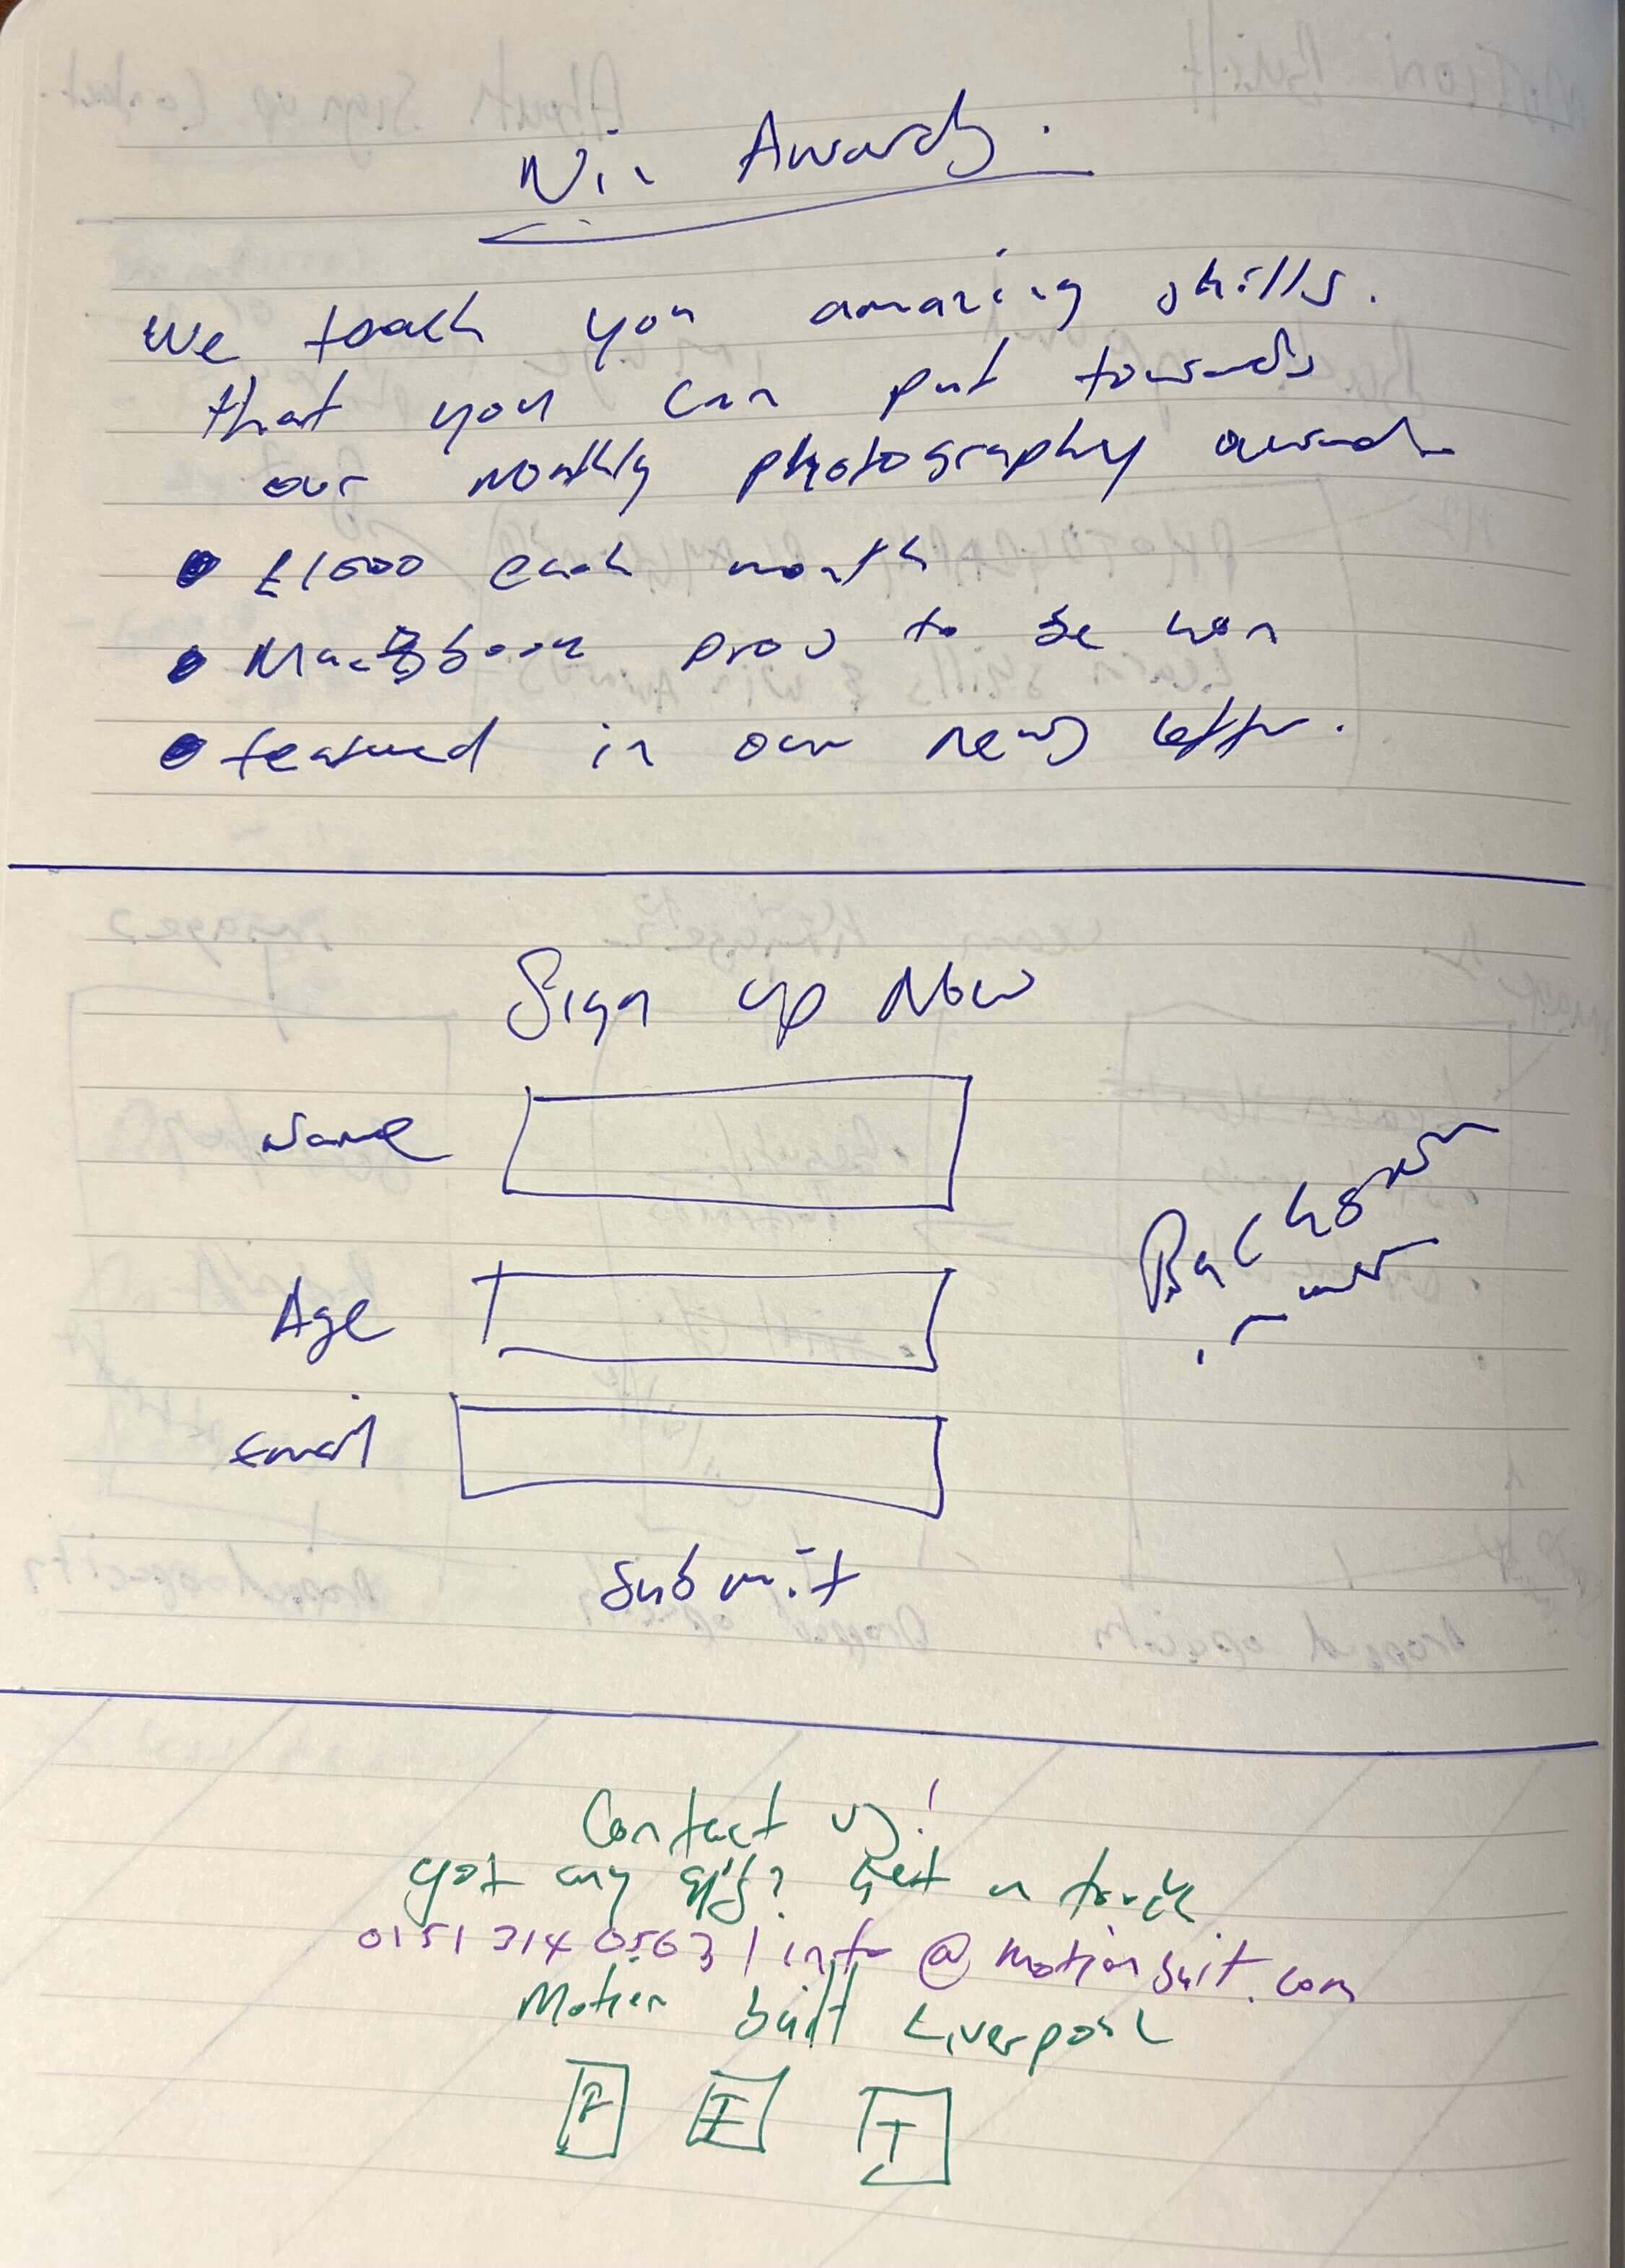 Win Awards.
We teach you amazing skills.
that you can put towards
our monthly photography awards
• £1000 each month
• MacBbook pros to be won
• featured in our news letter.
Sign up Now
Name
Age
Email
Submit
Contact us!
got any q's? Get in touch
0151 314 0563 | info@motionbuilt.com
Motion built Liverpool
F I T